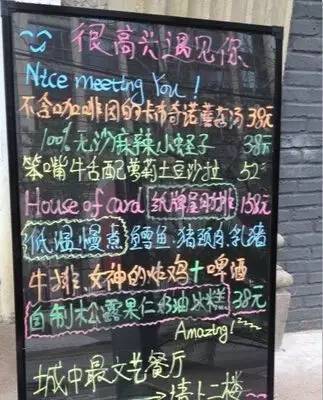 很高兴遇见你
Nice meeting You!
不含咖啡因的卡布奇诺蘑菇汤 38元
100%无沙麻辣小蛏子 38元
笨嘴牛舌配萝莉土豆沙拉 52
House of card 纸牌屋肉排 158元
低温慢煮 鳕鱼.猪颈肉.乳猪
牛排.女神的炸鸡+啤酒
自制松露果仁奶油冰糕 38元
Amazing!
城中最文艺餐厅
→请上二楼